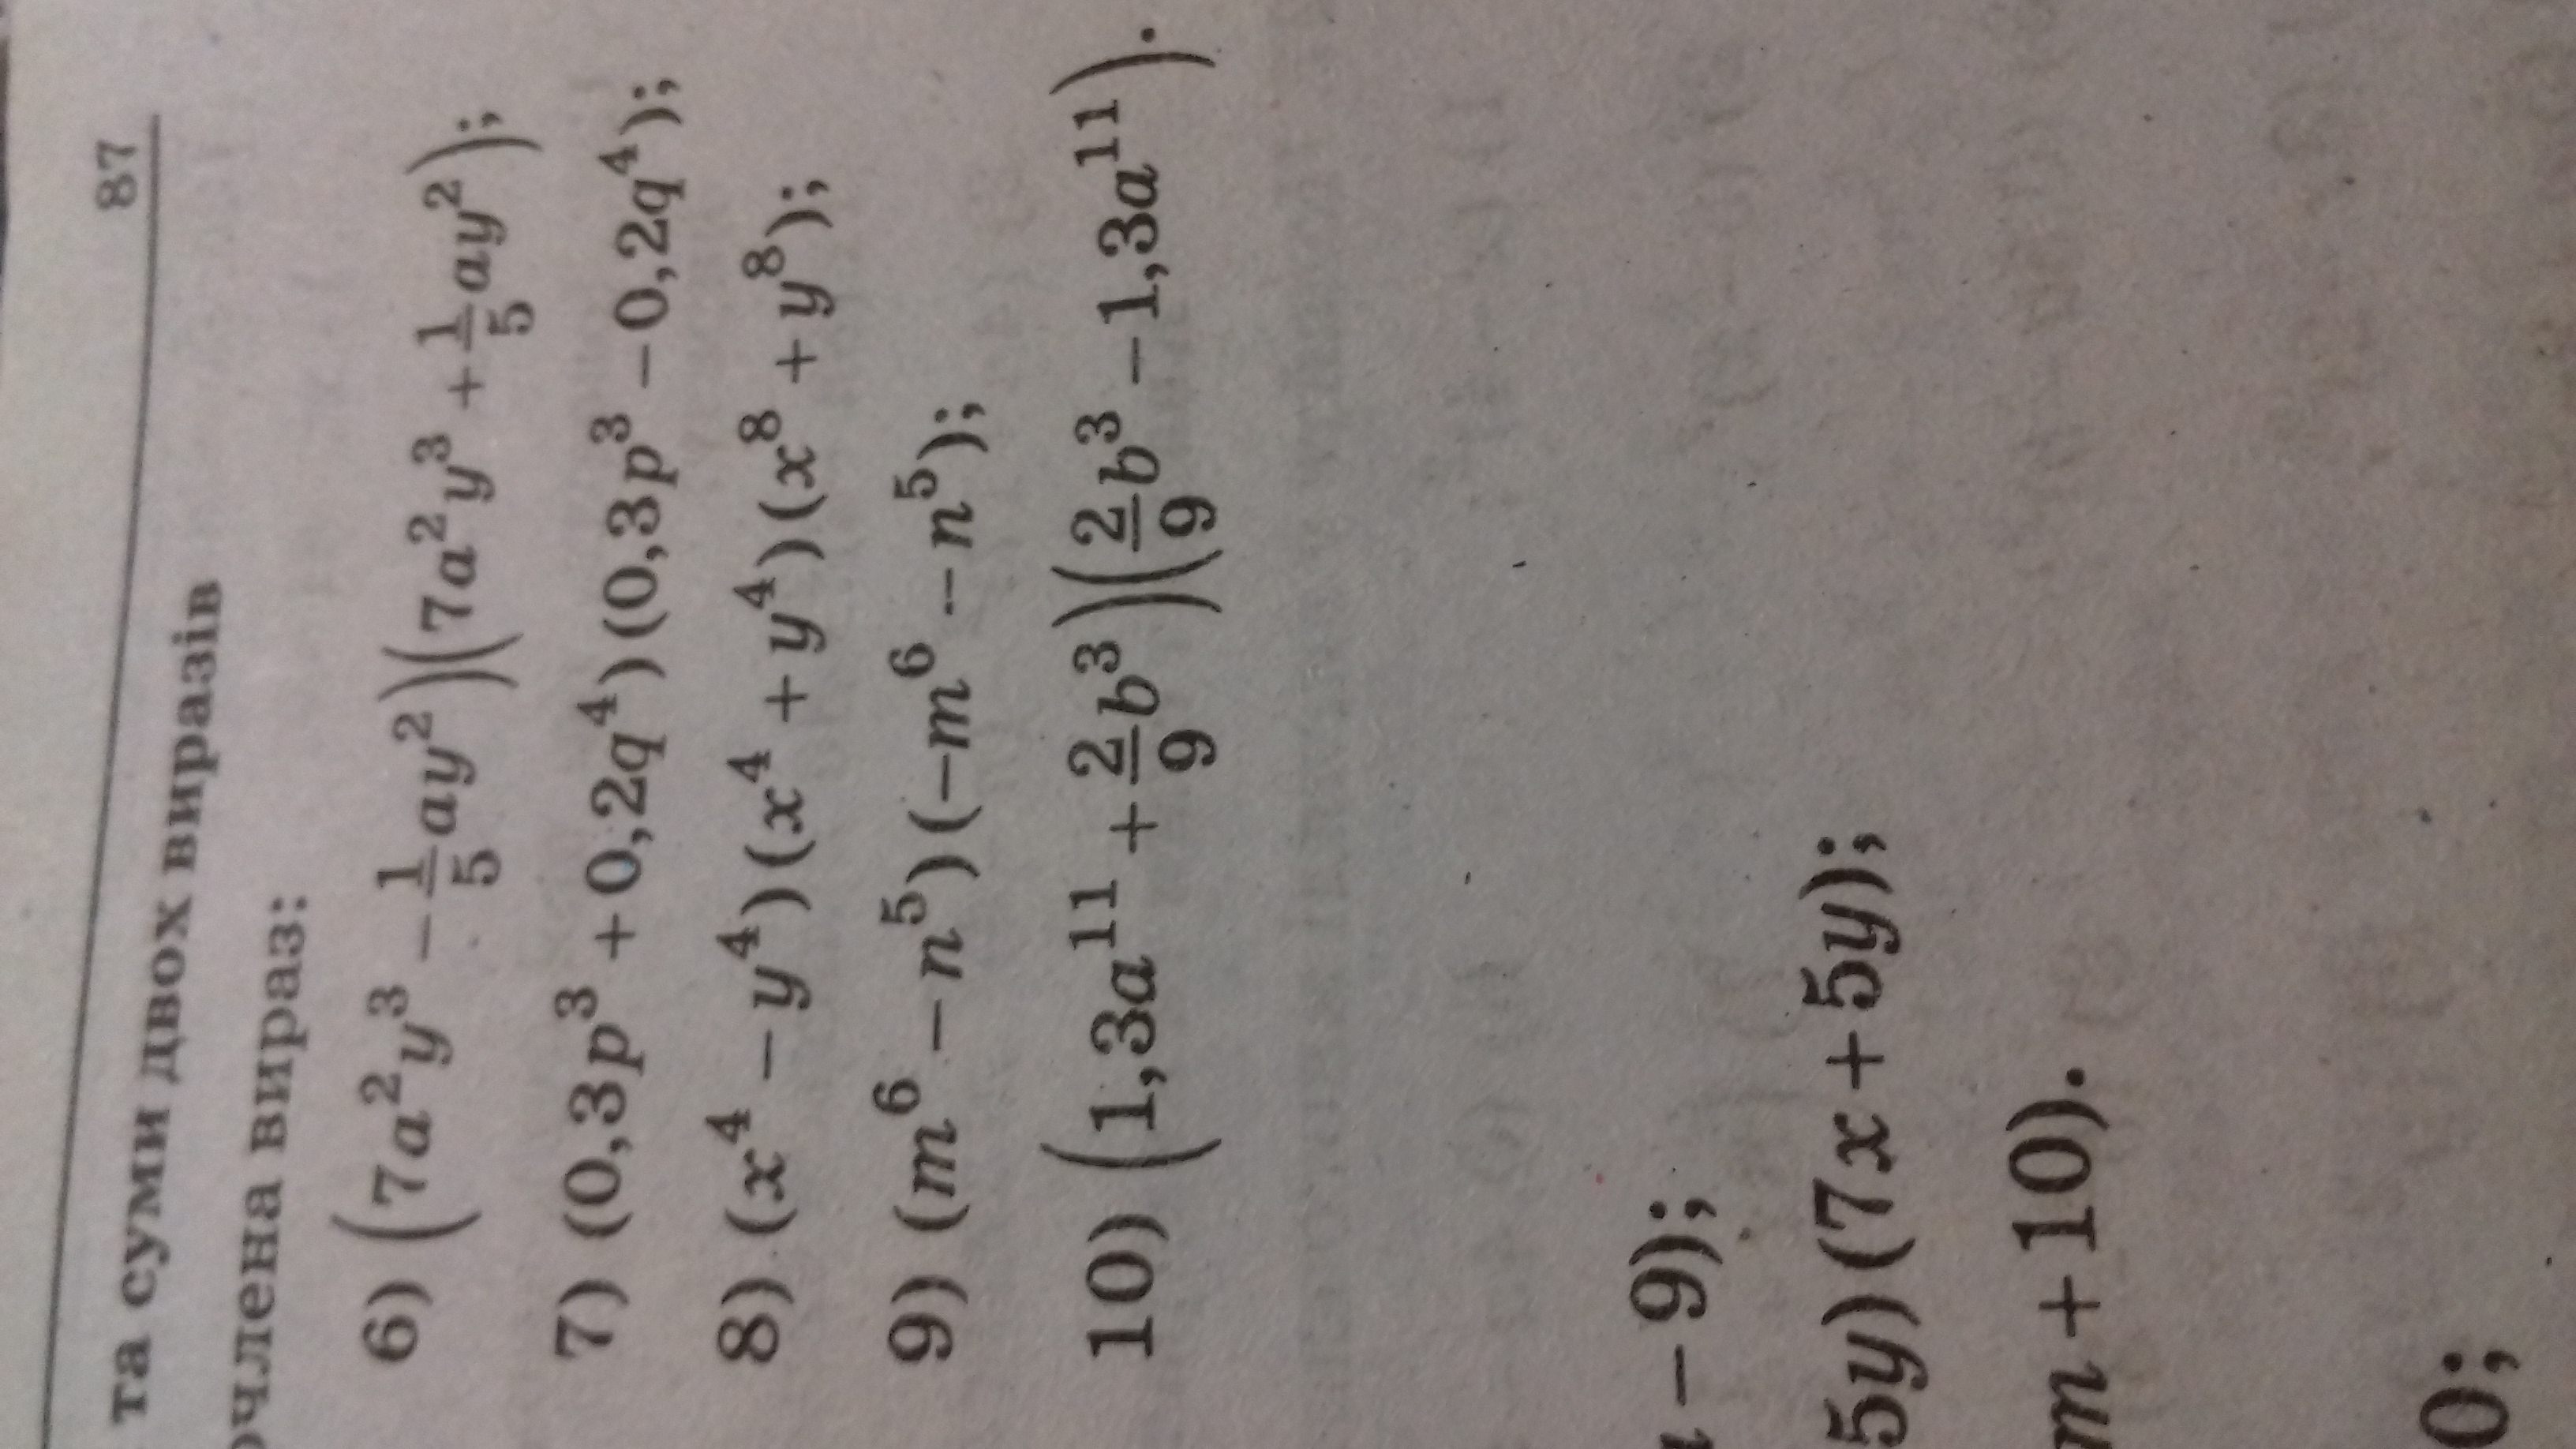 та суми двох виразів 87
очлена вираз:
6) (7a²y³ − 1/5 ay²)(7a²y³ + 1/5 ay²);
7) (0,3p³ + 0,2q⁴)(0,3p³ − 0,2q⁴);
8) (x⁴ − y⁴)(x⁴ + y⁴)(x⁸ + y⁸);
9) (m⁶ − n⁵)(−m⁶ − n⁵);
10) (1,3a¹¹ + 2/9 b³)(2/9 b³ − 1,3a¹¹).
− 9);
5y)(7x + 5y);
m + 10).
0;